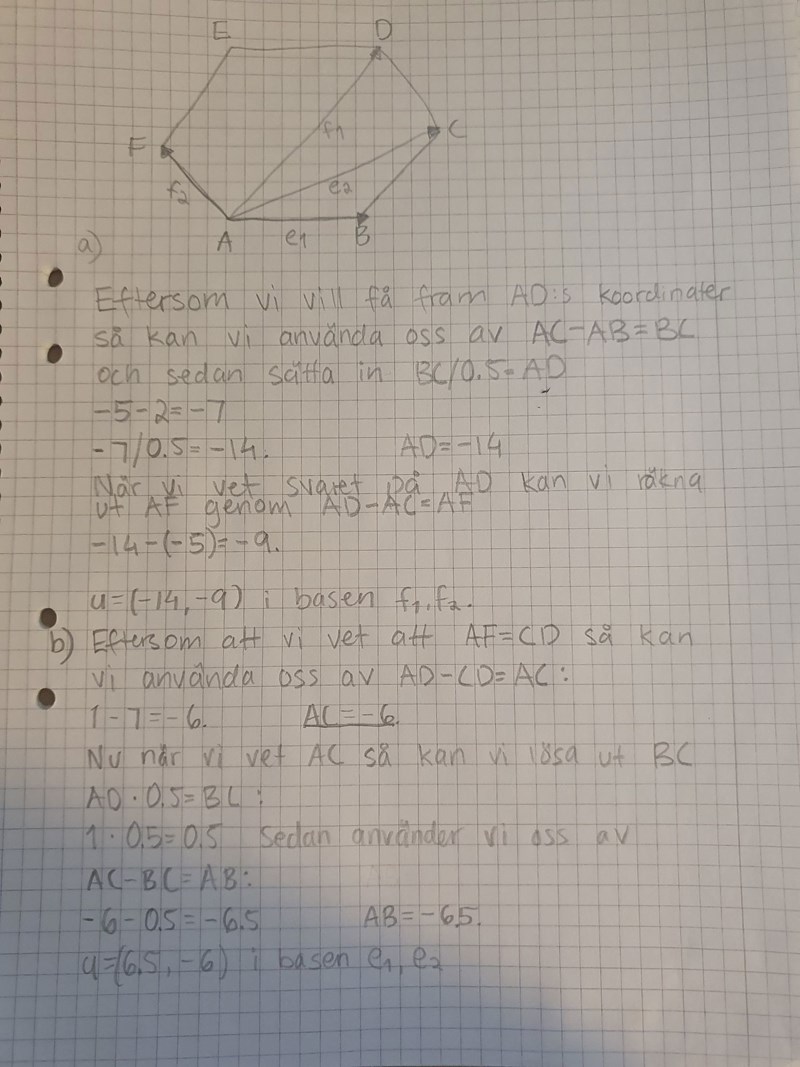 E D
f1
F C
f2 e2
A e1 B
a)
Eftersom vi vill få fram AD:s koordinater
så kan vi använda oss av AC-AB=BC
och sedan sätta in BC/0.5=AD
-5-2=-7
-7/0.5=-14. AD=-14
När vi vet svaret på AD kan vi räkna
ut AF genom AD-AC=AF
-14-(-5)=-9.
u=(-14,-9) i basen f1,f2.
b) Eftersom att vi vet att AF=CD så kan
vi använda oss av AD-CD=AC:
1-7=-6. AC=-6.
Nu när vi vet AC så kan vi lösa ut BC
AD·0.5=BC:
1·0.5=0.5 Sedan använder vi oss av
AC-BC=AB:
-6-0.5=-6.5 AB=-6.5.
u=(6.5,-6) i basen e1, e2